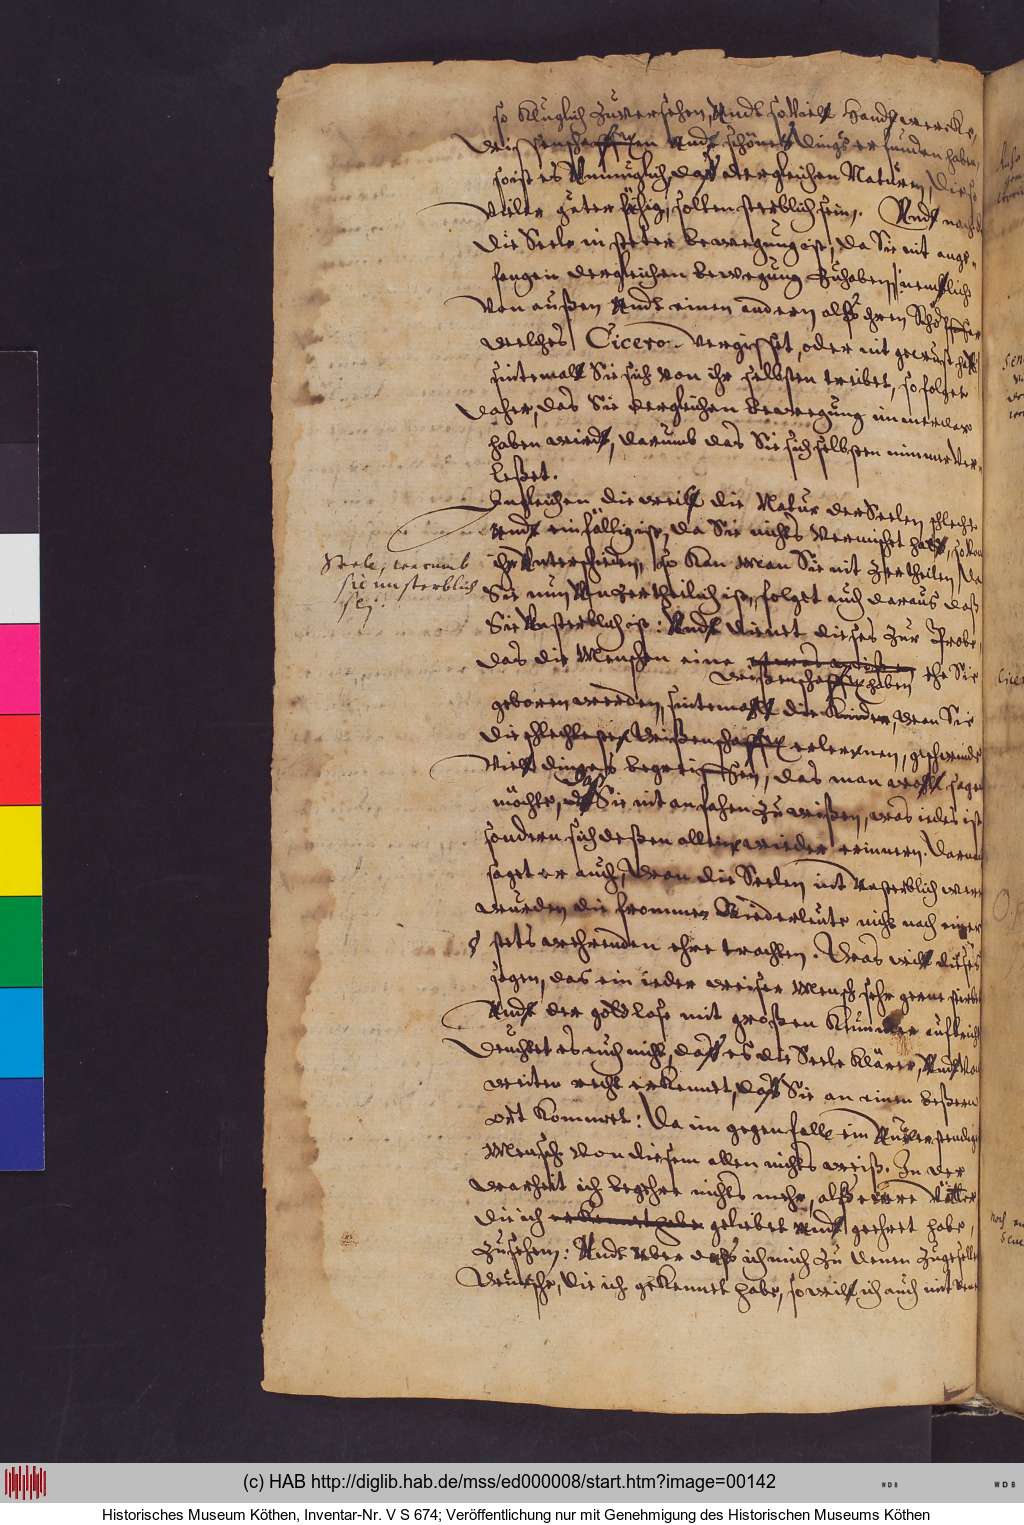 so kluglich zuversehen, Vndt so Vielt handtwercke,
Wissenschafften Vndt schönes dings erfunden haben,
so ist es Vnmüglich, daß dergleichen Naturen, die so
Vieler güeter fähig, solten sterblich sein. Vndt nach
die Seele in steter bewegung ist, da Sie nit ange-
fangen dergleichen bewegung zuhaben, nemblich
Von außen Vndt einen andern alß ihren Schöpffer
welches Cicero Vergisset, oder nit gewust hatt
sintemalt Sie sich Von ihr selbsten treibet, so folget
daher, das Sie dergleichen bewegung immerdar
haben wirdt, darumb das Sie sich selbsten nimmer Ver-
leßet.
Ingleichen dieweilt die Natur der Seelen schlecht
Vndt einfältig ist, da Sie nichts Vermischet hatt, so Von
ihr Vnterschieden, so kan man Sie nit zertheilen, da
Seele, warumb
sie unsterblich
sej.
Sie nun Vnzertheilich ist, folget auch daraus daß
Sie Vnsterblich ist: Vndt dienet dieses zur Probe,
das die Menschen eine etwas wißen ehe Sie
wißenschafft haben
geboren werden, sintemahlt die Kinder, wan Sie
die schlechteste Wißenschafften erlernen, geschwinde
Vielt dinges begreiffen, das man wohlt sagen
möchte, daß Sie nit anfahen zu wißen, was iedes ist
sondern sich deßen allein wieder erinnern. Darumb
saget er auch, Wan die Seelen nit Vnsterblich weren
wurden die frommen Biederleute nicht nach einer
stets wehrenden ehre trachten. Was wilt dieses
sagen, das ein ieder weiser Mensch sehr gerne stirbet
Vndt der gottlose mit großen Kummer
Deuchtet es euch nicht, daß es die Seele klärer, Vndt Von
weiten recht erkennet, daß Sie an einen beßern
ort kommet: Da im gegenfall ein Vnverstendiger
Mensch Von diesem allen nichts weiß. In der
warheit ich begehre nichts mehr, alß eure Vätter
die ich erkennet habe geliebet Vndt geehret habe,
zusehen: Vndt Vber daß ich mich zu denen zugesellen
Wünsche, die ich gekennet habe, so wilt ich auch mit
(c) HAB http://diglib.hab.de/mss/ed000008/start.htm?image=00142
WDB
WDB
Historisches Museum Köthen, Inventar-Nr. V S 674; Veröffentlichung nur mit Genehmigung des Historischen Museums Köthen